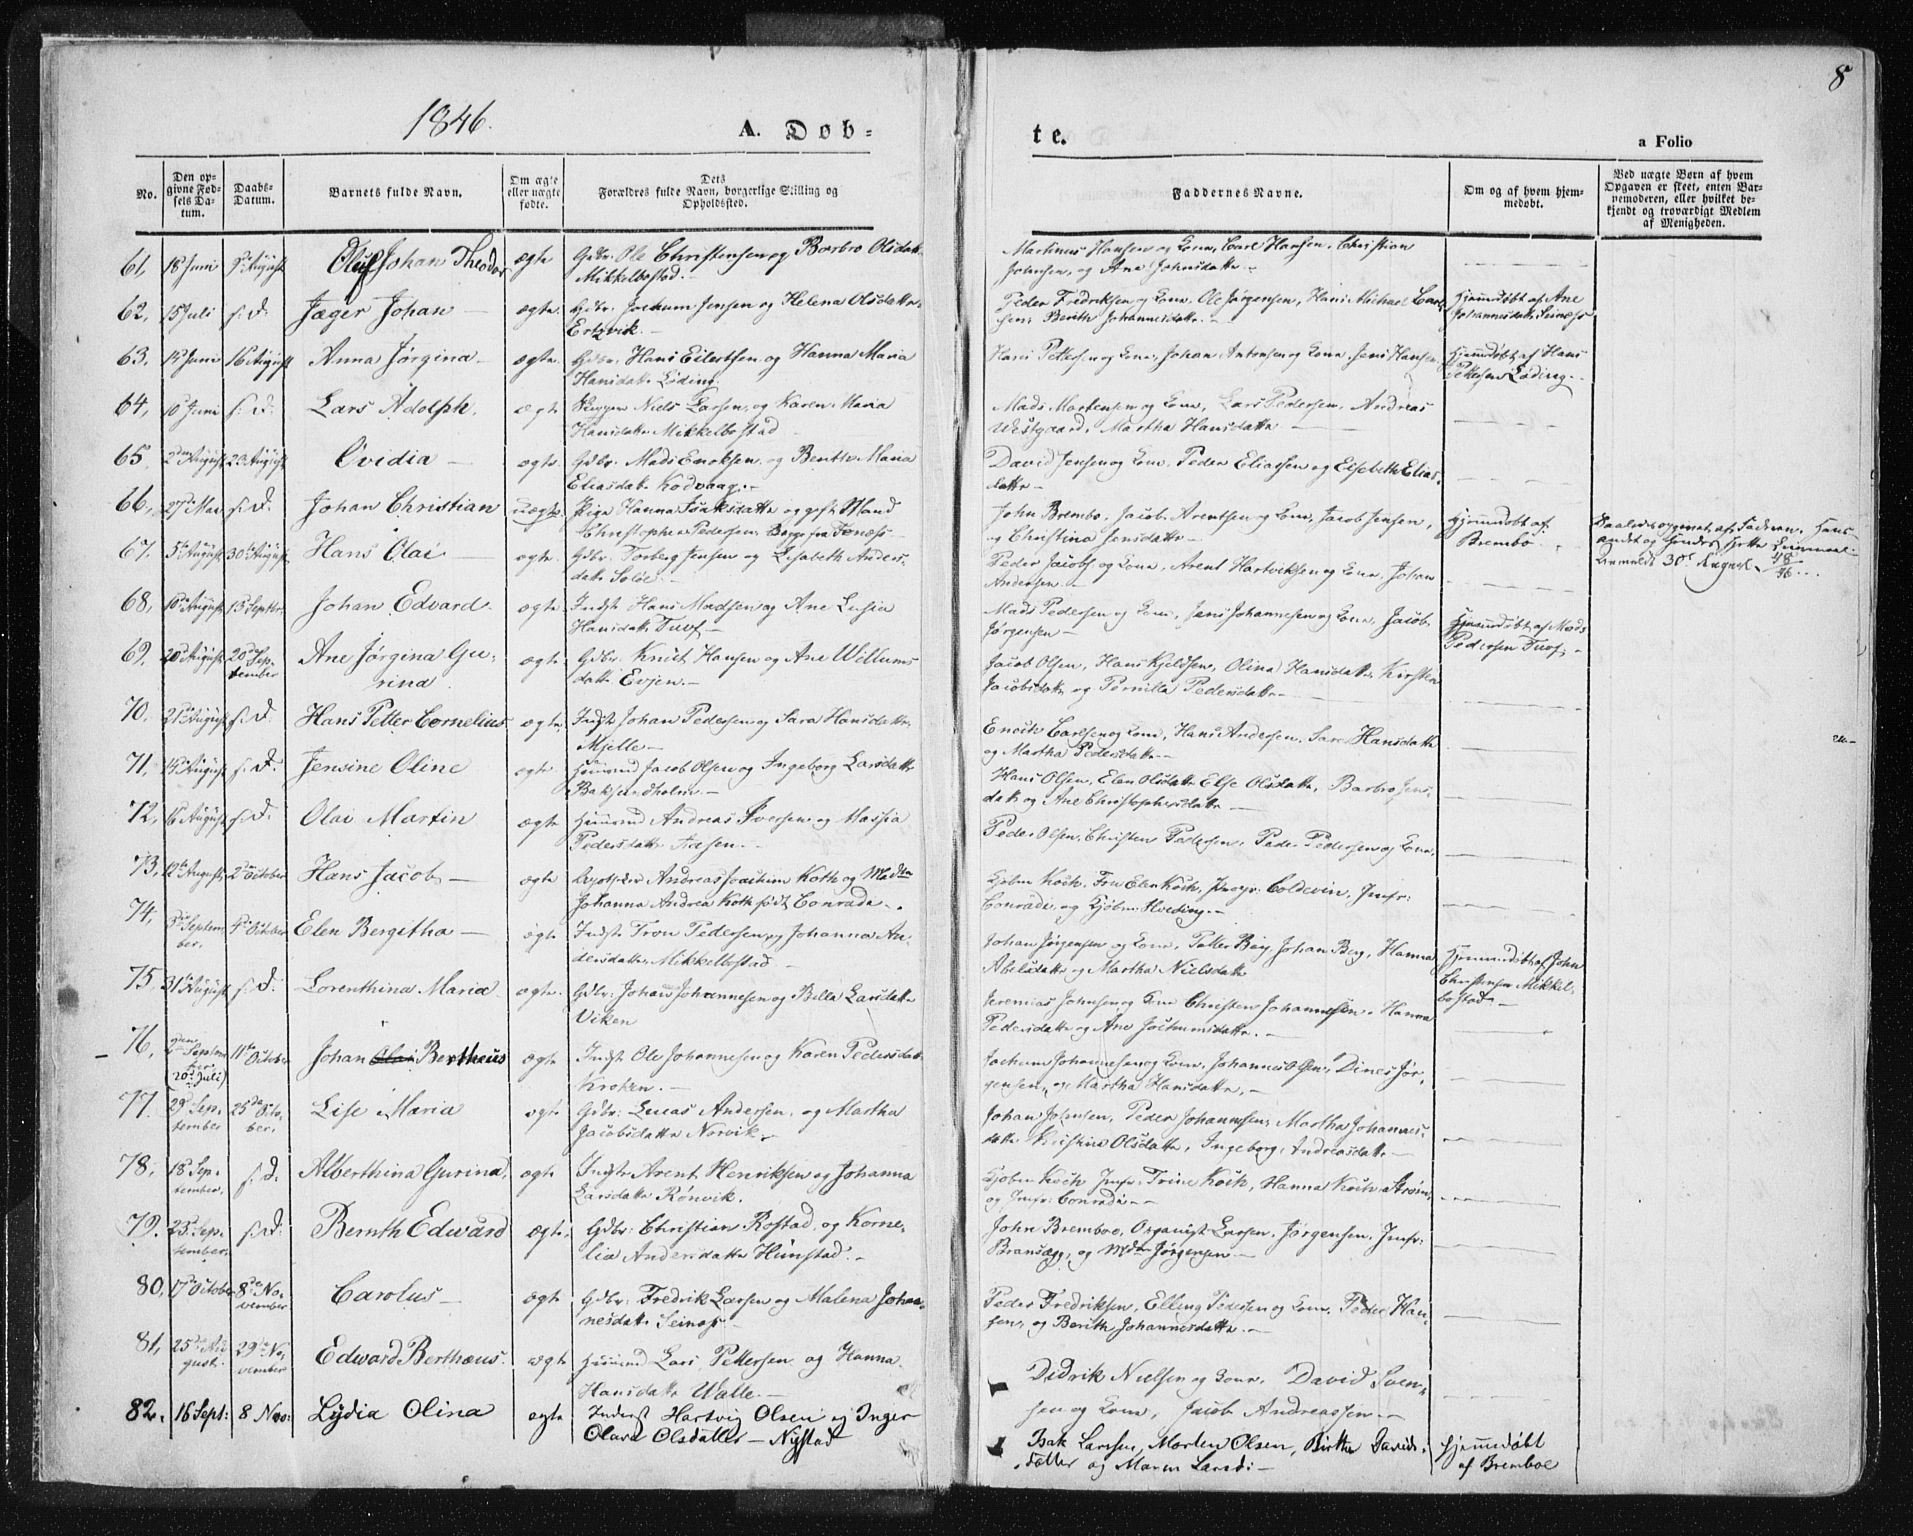 8
1846.
A. Døb-
te.
a Folio
No.
Den opgivne Fødsels Datum.
Daabs-Datum.
Barnets fulde Navn.
Om ægte eller uægte fødte.
Dets Forældres fulde Navn, borgerlige Stilling og Opholdssted.
Faddernes Navne.
Om og af hvem hjemmedøbt.
Ved uægte Børn af hvem Opgaven er skeet, enten Barnemoderen, eller hvilket bekjendt og troværdigt Medlem af Menigheden.
61, 18 Juni August Oluf Johan Theodor ægte Gdbr. Ole Christensen og Barbro Olsdatt.
Mikkelbostad.
Martinus Hansen og Kone, Carl Hansen, Christian
Johnsen, og Ane Johnsdattr
62, 15 Juli s. D. Jæger Johan ægte Gdbr. Jochum Jensen og Helena Olsdattr
Ertzvik.
Peder Fredriksen og Kone, Ole Jørgensen, Hans Michael Carl-
sen, Berith Johannesdattr
Hjemmdøbt af Ane
Johannesdattr Seines
63. Juni 16 August Anna Jørgina ægte Gdbr. Hans Eilertsen og Hanna Maria
Hansdattr Løding.
Hans Pettersen og Kone, Johan Antonsen og Kone, Jens Hansen
Hjemmdøbt af Hans
Pettersen Løding.
64, 10 Juni s. D. Lars Adolph. ægte Niels Larsen, og Karen Maria
Hansdattr Mikkelbostad
Mads Mortensen og Kone, Lars Pedersen, Andreas
Westgaard, Martha Hansdattr
65, 2den August 23 August Ovidia ægte Gdbr. Mads Enoksen og Berith Maria
Eliasdatt. Kodvaag.
David Jensen og Kone, Peder Eliassen og Elsebeth Elias-
dattr
66, 27 Mai s. D. Johan Christian uægte Pige Hanna Isaksdattr og gift Mand
Christopher Pedersen
John Brembo, Jacob Arentsen og Kone, Jacob Jensen,
og Christina Jensdattr
Hjemmdøbt af
Brembo
67. 5te August 30te August Hans Olai ægte. Gdbr. Torberg Jensen og Elisabeth Anders-
datt. Solöe.
Peder Jacobs og Kone, Arent Hartviksen og Kone, Johan
Andersen
30te August 48/46
68, 10de August 13 Septbr. Johan Edvard ægte Indst. Hans Madsen og Ane Lusia
Hansdattr Tuv
Mads Pedersen og Kone, Jens Johannesen og Kone, Jacob
Jørgensen
Hjemmdøbt af Mads
Pedersen Tuv
69, 20de August 20de September Ane Jørgina Gu-
rina
ægte Gdbr. Knut Hansen og Ane Willums
datt. Evjen.
Jacob Olsen, Hans Kjeldsen, Olina Hansdattr, Kirsten
Jacobsdattr og Pernilla Pedersdattr
70, 21de August s. D. Hans Petter Cornelius ægte Indst. Johan Pedersen og Sara Hansdattr
Mjelle
Enoch Carlsen og Kone, Hans Andersen, Sara Hansdattr
og Martha Pedersdattr
71, August s. D. Jensine Oline ægte Huusmd Jacob Olsen og Ingeborg Larsdattr
Baksundholm.
Hans Olsen, Elen Olsdattr Else Olsdattr, Barbro Jens-
datt. og Ane Christophersdattr
72, 16 August s. D. Olai Martin ægte Huusmd Andreas Iversen og Massia
Pedersdattr Aasen.
Peder Olsen, Christen Pedersen, Peder Pedersen og Kone.
73, 12te August 2den October Hans Jacob ægte Andreas Joachim Koch og Madm
Johanna Andrea Koch født Conradi.
Kjøbm Koch, Fru Elen Koch, Coldevin, Jomfr.
Conradi, og Kjøbm. Hveding.
74, September 4de October Elen Bergitha ægte Indst. Tron Pedersen og Johanna An-
dersdattr, Mikkelbostad
Johan Jørgensen og Kone, Petter Berg, Johan Berg, Hanna
Abelsdattr og Martha Nielsdattr
Hjemmdøbt af John
Christensen Mikkel-
bostad
75, 31te August s. D. Lorenthina Maria ægte Gdbr. Johan Johannesen og Billa Larsdattr
Viken
Jeremias Johnsen og Kone Christen Johannesen, Hanna
Pedersdattr og Ane Jochumsdattr.
76, September (20de Juli) 11te October Johan Olai Bertheus ægte Indst. Ole Johannesen og Karen Pedersdatt.
Kroken.
Jochum Johannesen og Kone, Johannes Olsen, Dines Jør-
gensen, og Martha Hansdattr.
77. 29de September 25de October, Lise Maria ægte Gdbr: Lucas Andersen, og Martha
Jacobsdattr Norvik.
Johan Johnsen, Peder Johannesen, Martha Johannes-
dattr Kirstine Olsdattr, Ingeborg Andreasdattr
78, 18 September, s. D. Alberthina Gurina, ægte Indst. Arent Henriksen og Johanna
Larsdattr Rönvik.
Kjøbm Koch, Jmfr. Trine Koch, Hanna Koch Strøm,
og Jmfr. Conradi
79. 23de September, s. D. Bernth Edward ægte, Gdbr. Christian Rostad, og Korne-
lia Andersdattr Hunstad.
John Bremboe, Organist Larsen, Jørgensen, Jmfr.
Bransæg, og Mdm Jørgensen
80, 17de October 8de November Carolus ægte Gdbr. Fredrik Larsen og Malena Johan-
nesdatt. Seines
Peder Fredriksen, Elling Pedersen og Kone, Peder Han-
sen, og Berith Johannesdattr.
81, 25de August 29de November Edward Berthæus. ægte Huusmd Lars Pettersen og Hanna
Hansdattr Walle.
Didrik Nielsen og Kone, David Sven-
sen og Kone, Jacob Andreassen
82. 16 Sept: 8 Nov: Lydia Olina ægte Inderst Hartvig Olsen og Inger
Olava Olsdatter - Nystad
Isak Larssen, Morten Olsen, Birthe Davids-
datter og Maren Larsd:
hjemmedøbt
af Bremboe